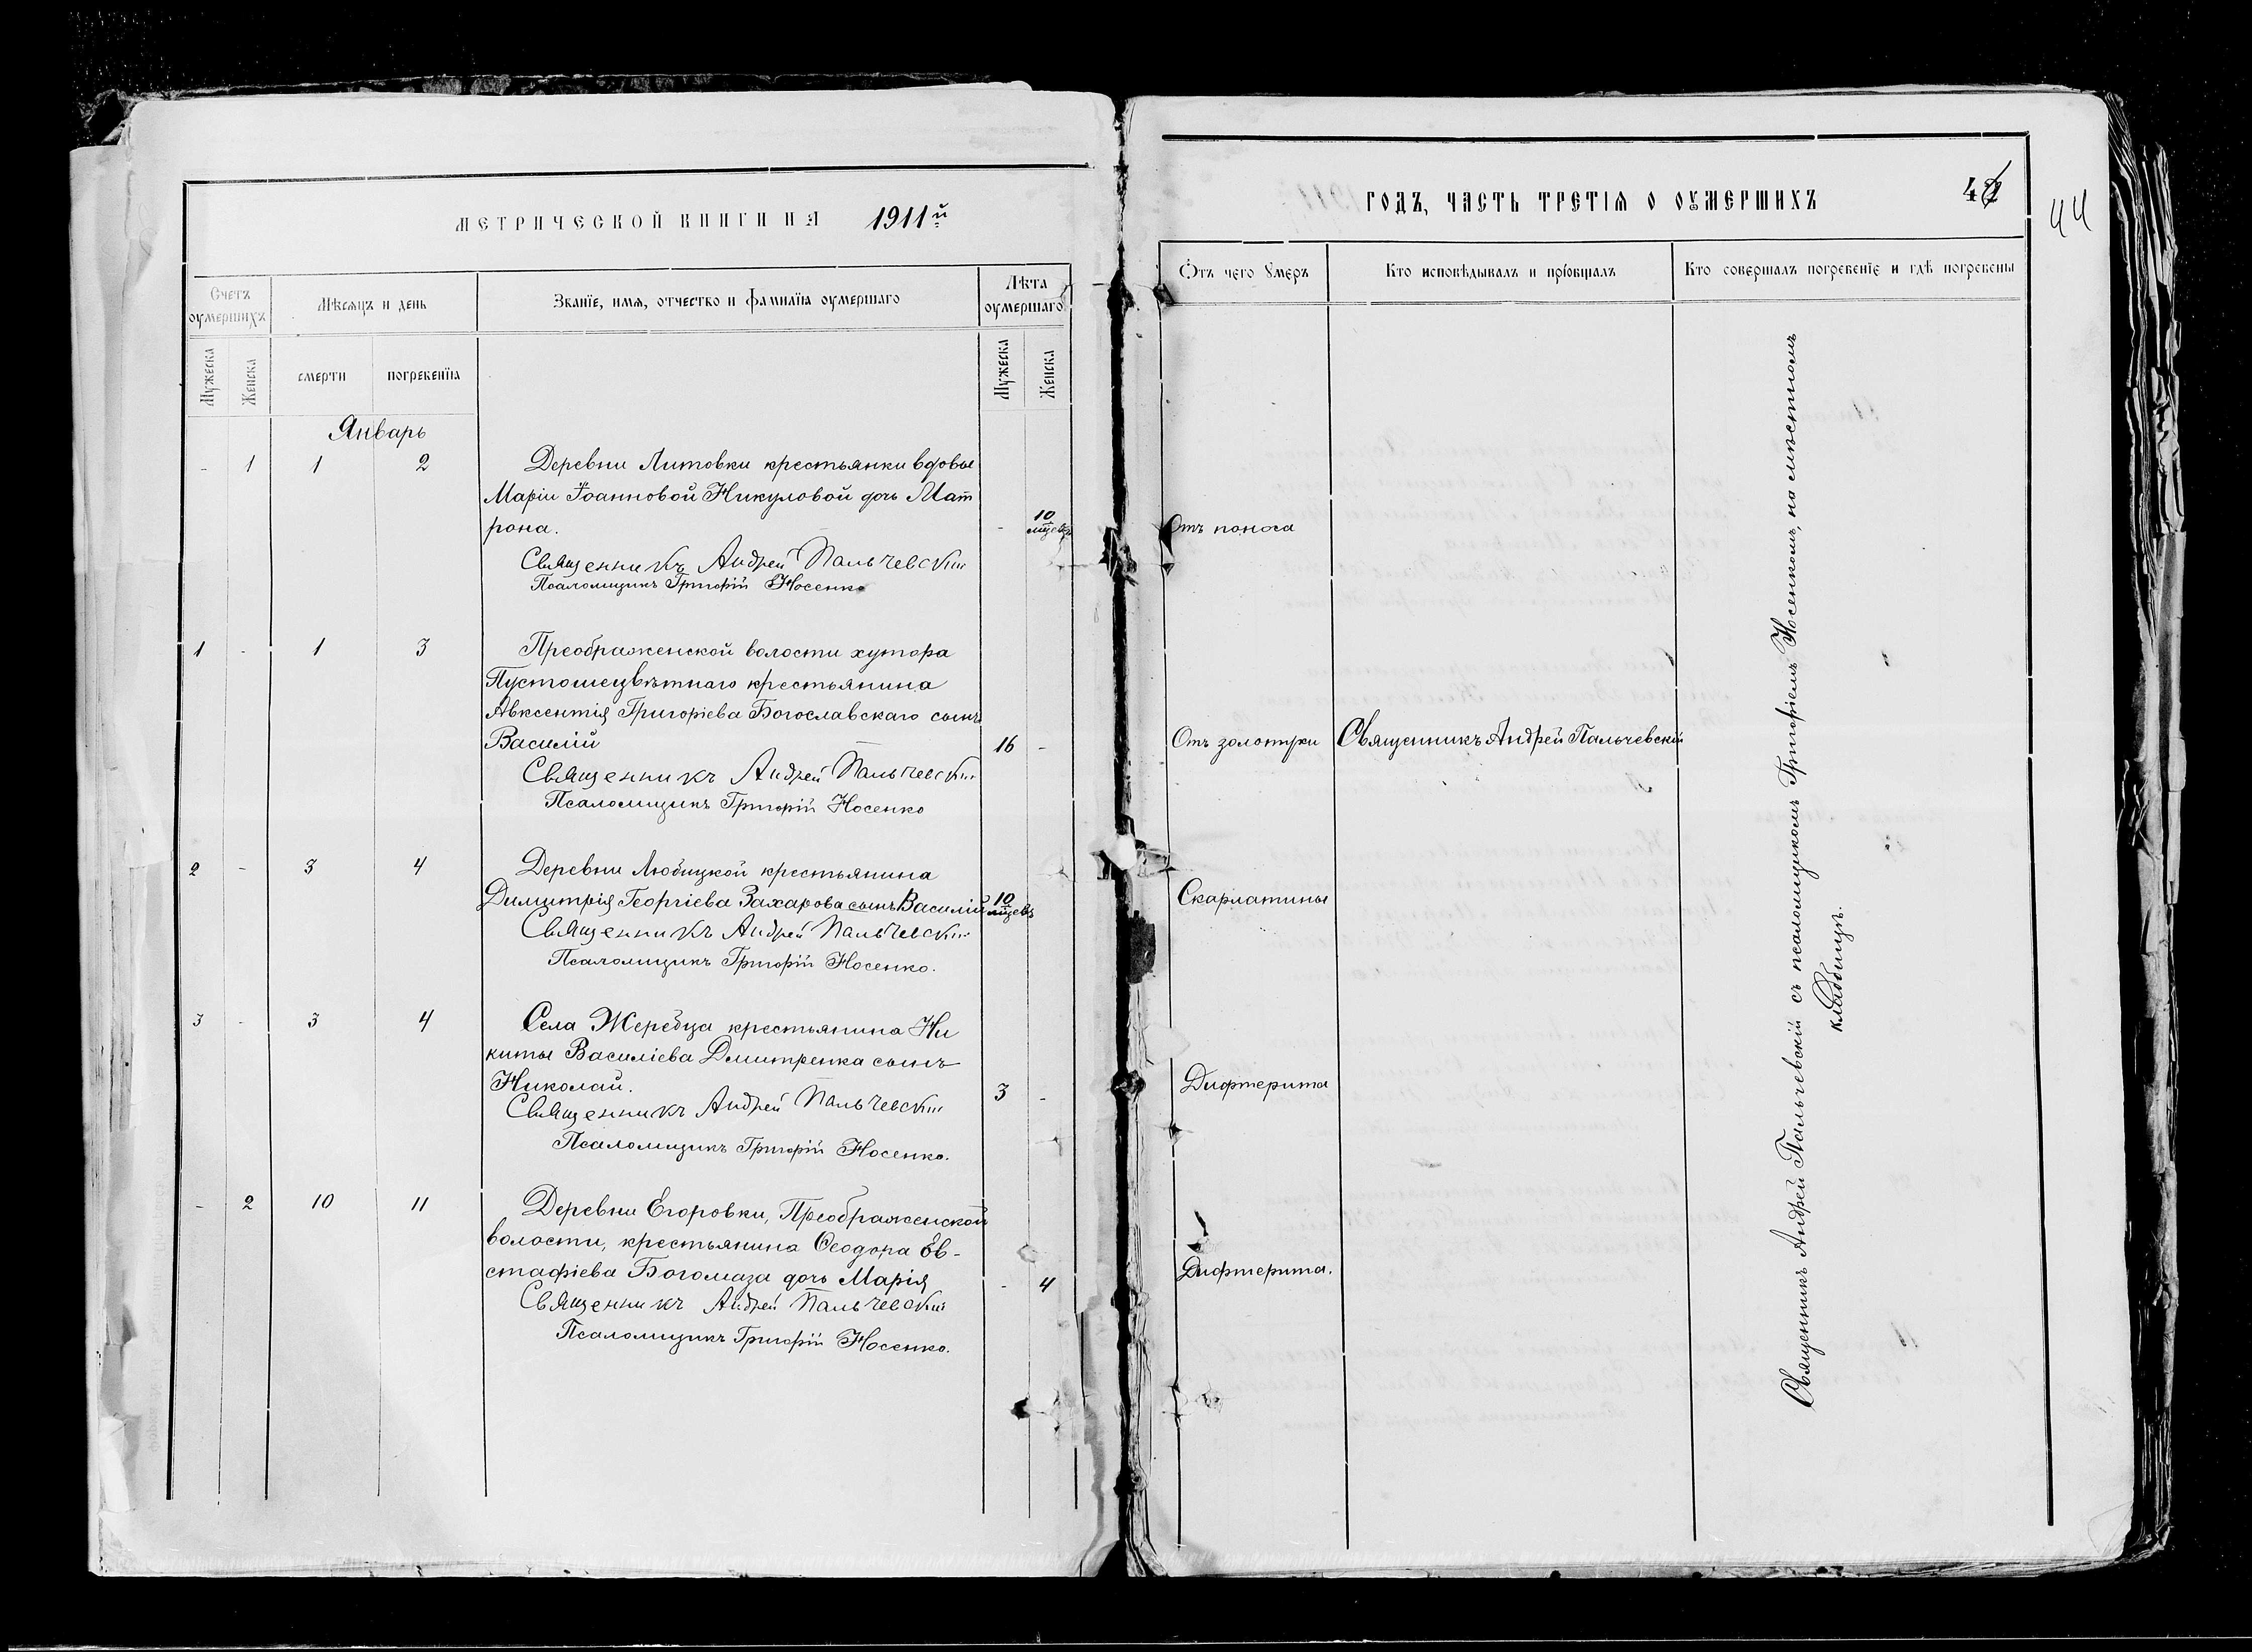 МЕТРИЧЕСКОЙ КНИГИ НА 1911й
Счетъ оумершихъ
Мѣсяцъ и день
Званїе, имя, отчество и фамилїя оумершаго
Лѣта оумершаго
Мужеска
Женска
смерти
погребенїя
Мужеска
Женска
Январь
- 1 1 2 Деревни Литовки крестьянки вдовы
Маріи Іоанновой Никуловой дочь Мат
рона. - 10 мцевъ
Священникъ Андрей Пальчевскій
Псаломщикъ Григорій Носенко
1 - 1 3 Преображенской волости хутора
Пустошецвѣтнаго крестьянина
Авксентія Григоріева Богославскаго сынъ
Василій 16 -
Священникъ Андрей Пальчевскій
Псаломщикъ Григорій Носенко
2 - 3 4 Деревни Любицкой крестьянина
Димитрія Георгіева Захарова сынъ Василій 10 мцевъ
Священникъ Андрей Пальчевскій
Псаломщикъ Григорій Носенко.
3 - 3 4 Села Жеребца крестьянина Ни
киты Василіева Дмитренка сынъ
Николай. 3 -
Священникъ Андрей Пальчевскій
Псаломщикъ Григорій Носенко.
- 2 10 11 Деревни Егоровки, Преображенской
волости, крестьянина Ѳеодора Ев-
стафіева Богомаза дочь Марія - 4
Священникъ Андрей Пальчевскій
Псаломщикъ Григорій Носенко.
ГОДЪ, ЧАСТЬ ТРЕТІЯ О ОУМЕРШИХЪ
44
Отъ чего умеръ
Кто исповѣдывалъ и прїобщалъ
Кто совершалъ погребенїе и гдѣ погребены
Отъ поноса
Отъ золотухи Священникъ Андрей Пальчевскій
Скарлатины
Дифтерита
Дифтерита.
Священникъ Андрей Пальчевскій съ псаломщикомъ Григоріемъ Носенкомъ, на мѣстномъ
кладбищѣ.